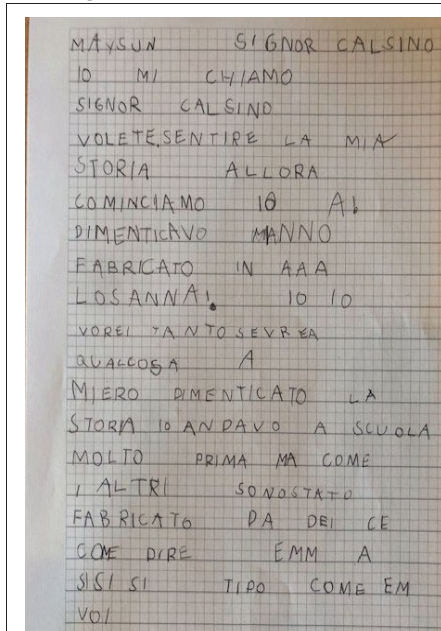 MAYSUN SIGNOR CALSINO
IO MI CHIAMO
SIGNOR CALSINO
VOLETE SENTIRE LA MIA
STORIA ALLORA
COMINCIAMO IO A!
DIMENTICAVO MANNO
FABRICATO IN AAA
LOSANNA! IO IO
VOREI TANTO SEVREA
QUALCOSA A
MIERO DIMENTICATO LA
STORIA IO ANDAVO A SCUOLA
MOLTO PRIMA MA COME
I ALTRI SONOSTATO
FABRICATO DA DEI CE
COME DIRE EMM A
SISI SI TIPO COME EM
VOI